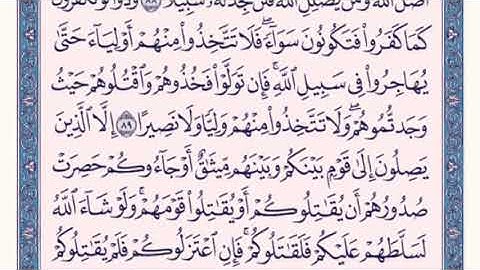 أَضَلَّ ٱللَّهُ وَمَن يُضْلِلِ ٱللَّهُ فَلَن تَجِدَ لَهُۥ سَبِيلًا ٨٨ وَدُّوا۟ لَوْ تَكْفُرُونَ
كَمَا كَفَرُوا۟ فَتَكُونُونَ سَوَآءً ۖ فَلَا تَتَّخِذُوا۟ مِنْهُمْ أَوْلِيَآءَ حَتَّىٰ
يُهَاجِرُوا۟ فِى سَبِيلِ ٱللَّهِ ۚ فَإِن تَوَلَّوْا۟ فَخُذُوهُمْ وَٱقْتُلُوهُمْ حَيْثُ
وَجَدتُّمُوهُمْ ۖ وَلَا تَتَّخِذُوا۟ مِنْهُمْ وَلِيًّا وَلَا نَصِيرًا ٨٩ إِلَّا ٱلَّذِينَ
يَصِلُونَ إِلَىٰ قَوْمٍۭ بَيْنَكُمْ وَبَيْنَهُم مِّيثَـٰقٌ أَوْ جَآءُوكُمْ حَصِرَتْ
صُدُورُهُمْ أَن يُقَـٰتِلُوكُمْ أَوْ يُقَـٰتِلُوا۟ قَوْمَهُمْ ۚ وَلَوْ شَآءَ ٱللَّهُ
لَسَلَّطَهُمْ عَلَيْكُمْ فَلَقَـٰتَلُوكُمْ ۚ فَإِنِ ٱعْتَزَلُوكُمْ فَلَمْ يُقَـٰتِلُوكُمْ